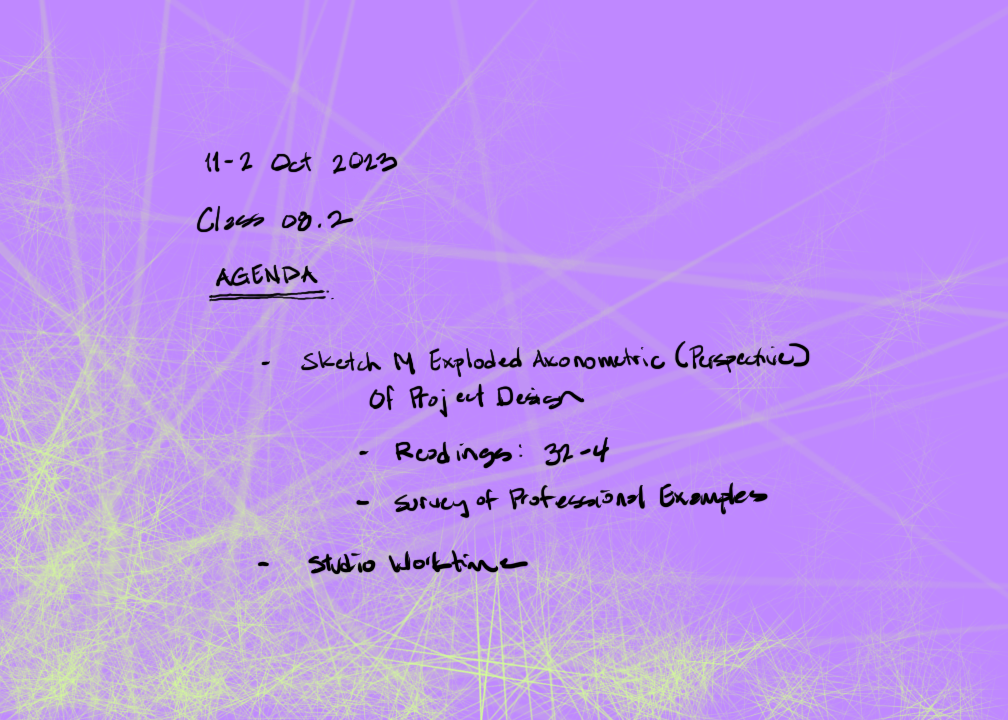 11-2 Oct 2023
Class 08.2
AGENDA
- Sketch M Exploded Axonometric (Perspective)
Of Project Design
- Readings: 32-4
- Survey of Professional Examples
- Studio Worktime